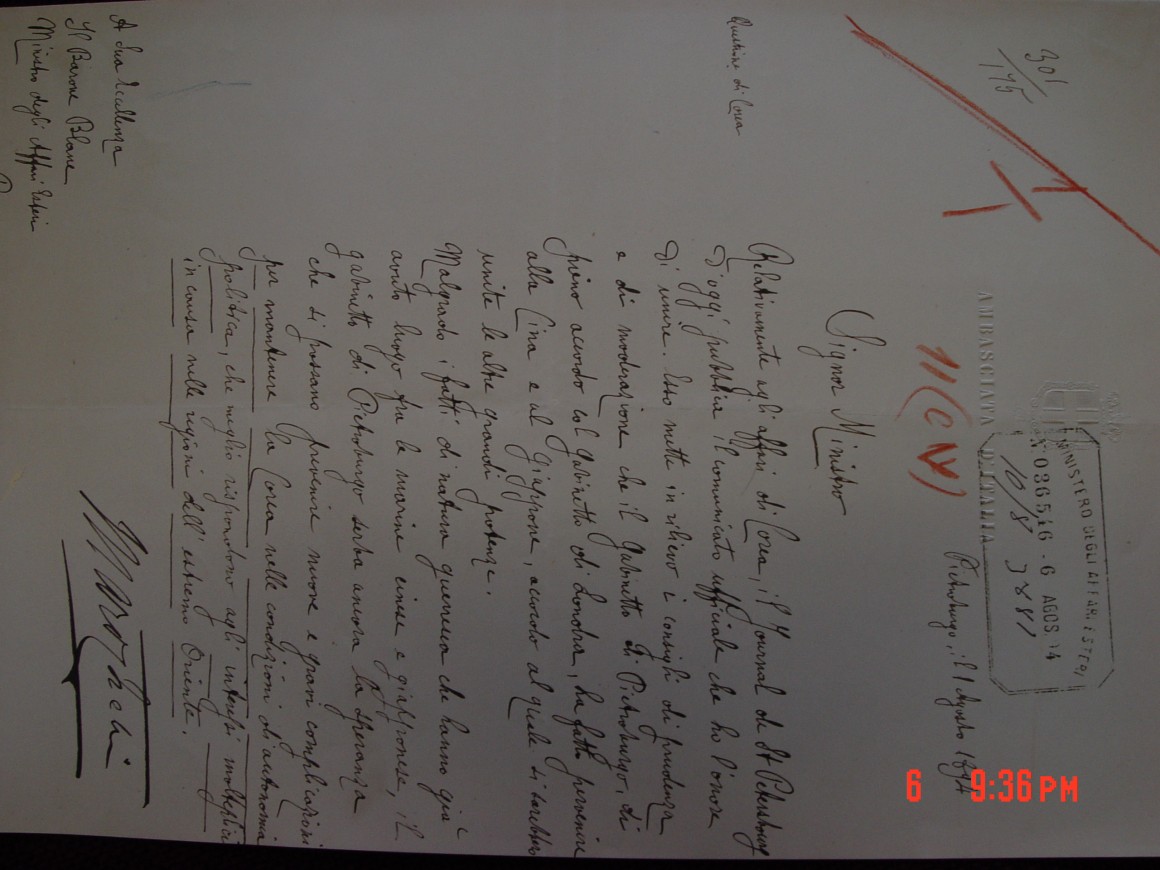 301
/175
AMBASCIATA D'ITALIA
MINISTERO DEGLI AFFARI ESTERI
N. 03651 - 6 AGOS. 94
Pietroburgo, il 1 Agosto 1894
Questione di Corea
Signor Ministro
Relativamente agli affari di Corea, il Journal de St Petersbourg
d'oggi pubblica il comunicato ufficiale che ho l'onore
di unire. Esso mette in rilievo i consigli di prudenza
e di moderazione che il gabinetto di Pietroburgo, di
pieno accordo col gabinetto di Londra, ha fatto pervenire
alla Cina e al Giappone, accordo al quale si sarebbero
unite le altre grandi potenze.
Malgrado i fatti di natura guerresca che hanno già
avuto luogo fra le marine cinese e giapponese, il
gabinetto di Pietroburgo serba ancora la speranza
che si possano prevenire nuove e gravi complicazioni
per mantenere la Corea nelle condizioni di autonomia
politica, che meglio rispondono agli interessi molteplici
in causa nelle regioni dell'estremo Oriente.
A Sua Eccellenza
Il Barone Blanc
Ministro degli Affari Esteri
6 9:36 PM